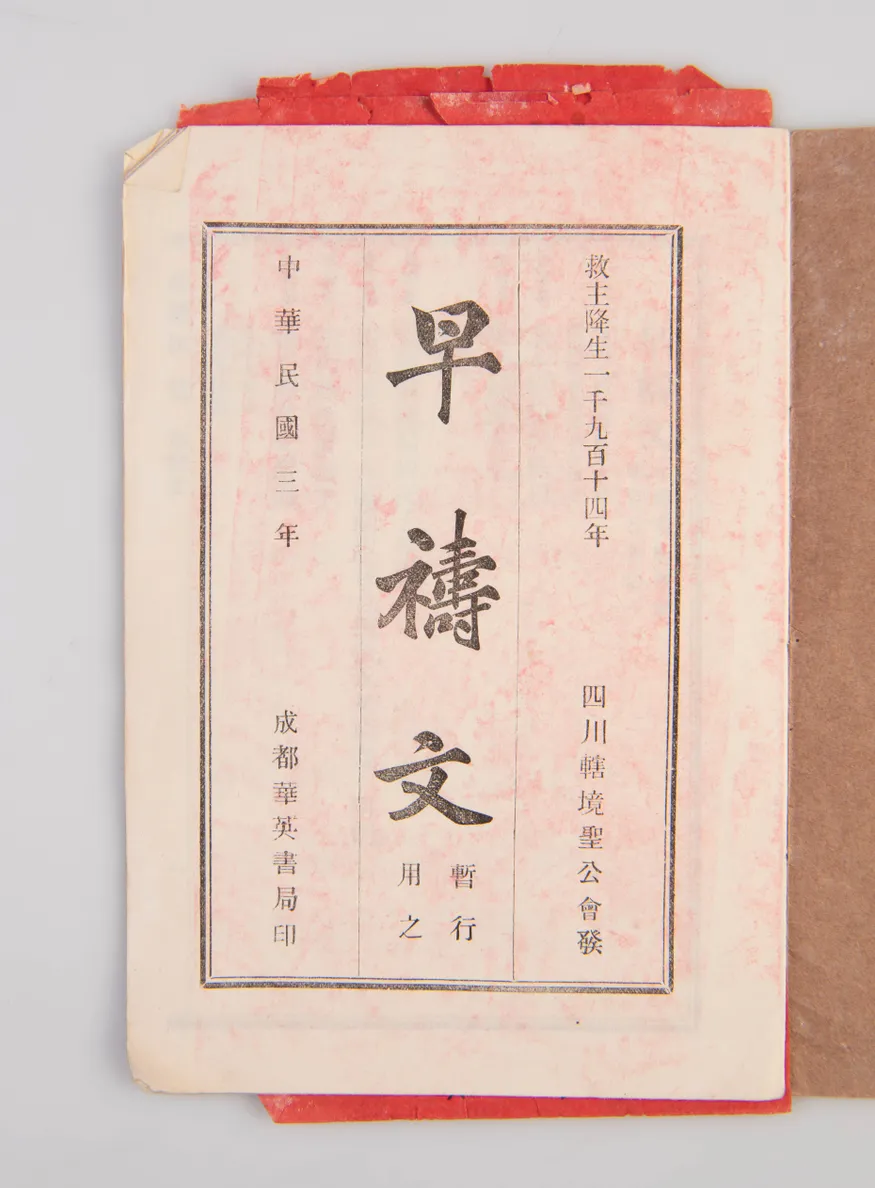 救主降生一千九百十四年
四川轄境聖公會發
早禱文
暫行
用之
中華民國三年
成都華英書局印